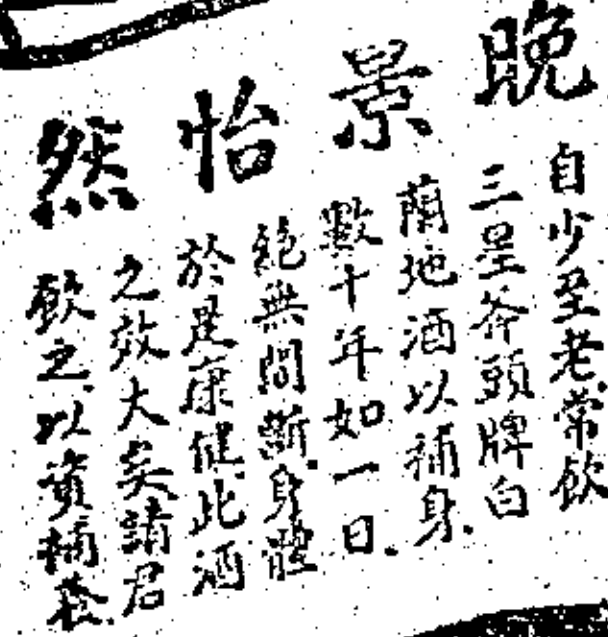 晚景怡然
自少至老.常飲
三星斧頭牌白
蘭地酒以補身.
數十年如一日.
絕無間斷.身體
於是康健.此酒
之效大矣請君
飲之.以資補養.